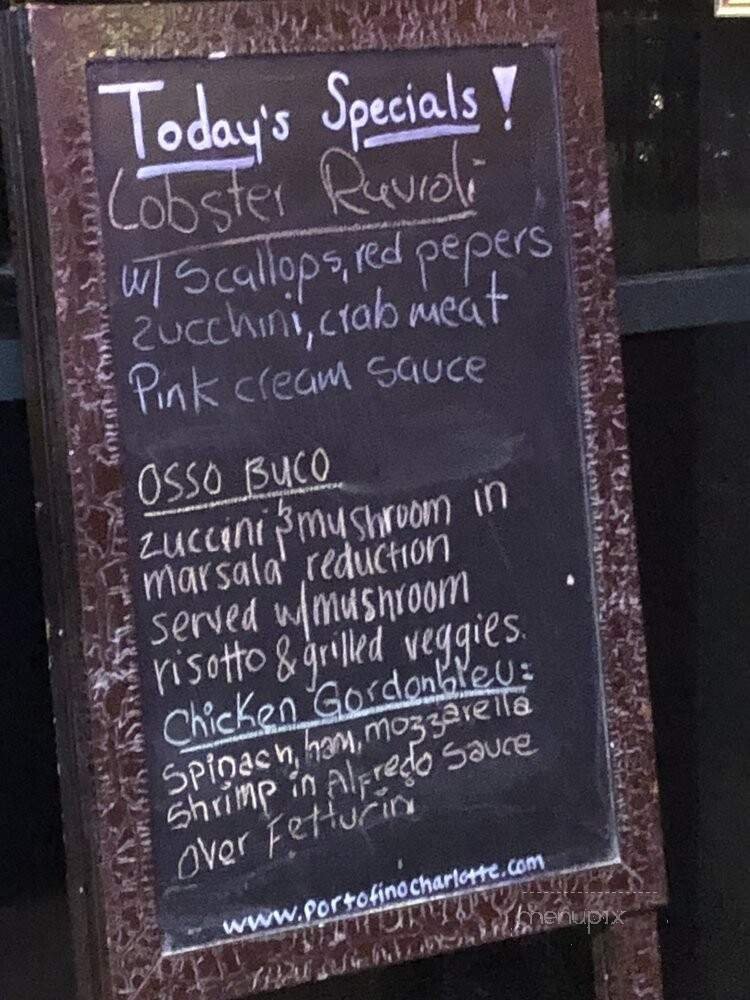 Today's Specials!
Lobster Ravioli
w/ scallops, red pepers
zucchini, crab meat
Pink cream sauce
OSSO BUCO
zuccini & mushroom in
marsala reduction
served w/mushroom
risotto & grilled veggies.
Chicken Gordonbleu:
Spinach, ham, mozzarella
shrimp in Alfredo sauce
over Fettucini
www.portofinocharlotte.com
menupix